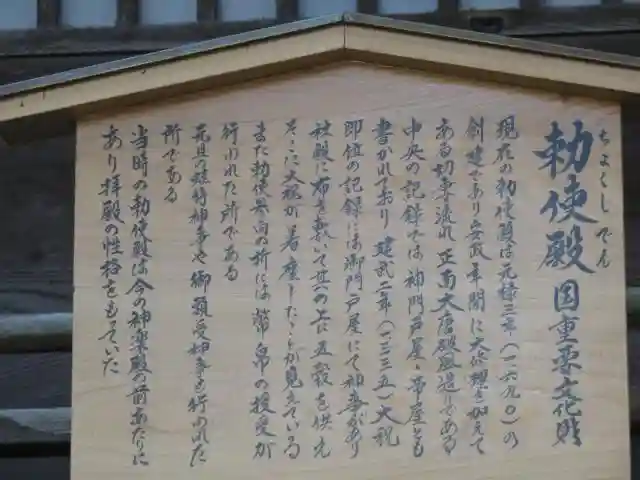 ちょくしでん
勅使殿 国重要文化財
現在の勅使殿は元禄三年(一六九〇)の
創建であり安政年間に大修理を加えて
ある切妻流れ正面大唐破風造りである
中央の記録では神門戸屋、帝屋とも
書かれており 建武二年(一三三五)大祝
即位の記録には御門戸屋にて神事があり
社殿に布を敷いて其の上に五穀を供え
そこに大祝が着座したことが見えている
また勅使参向の折には幣帛の授受が
行われた所である
元旦の雅楽神事や御頭受神事も行われた
所である
当時の勅使殿は今の神楽殿の前あたりに
あり拝殿の性格をもっていた